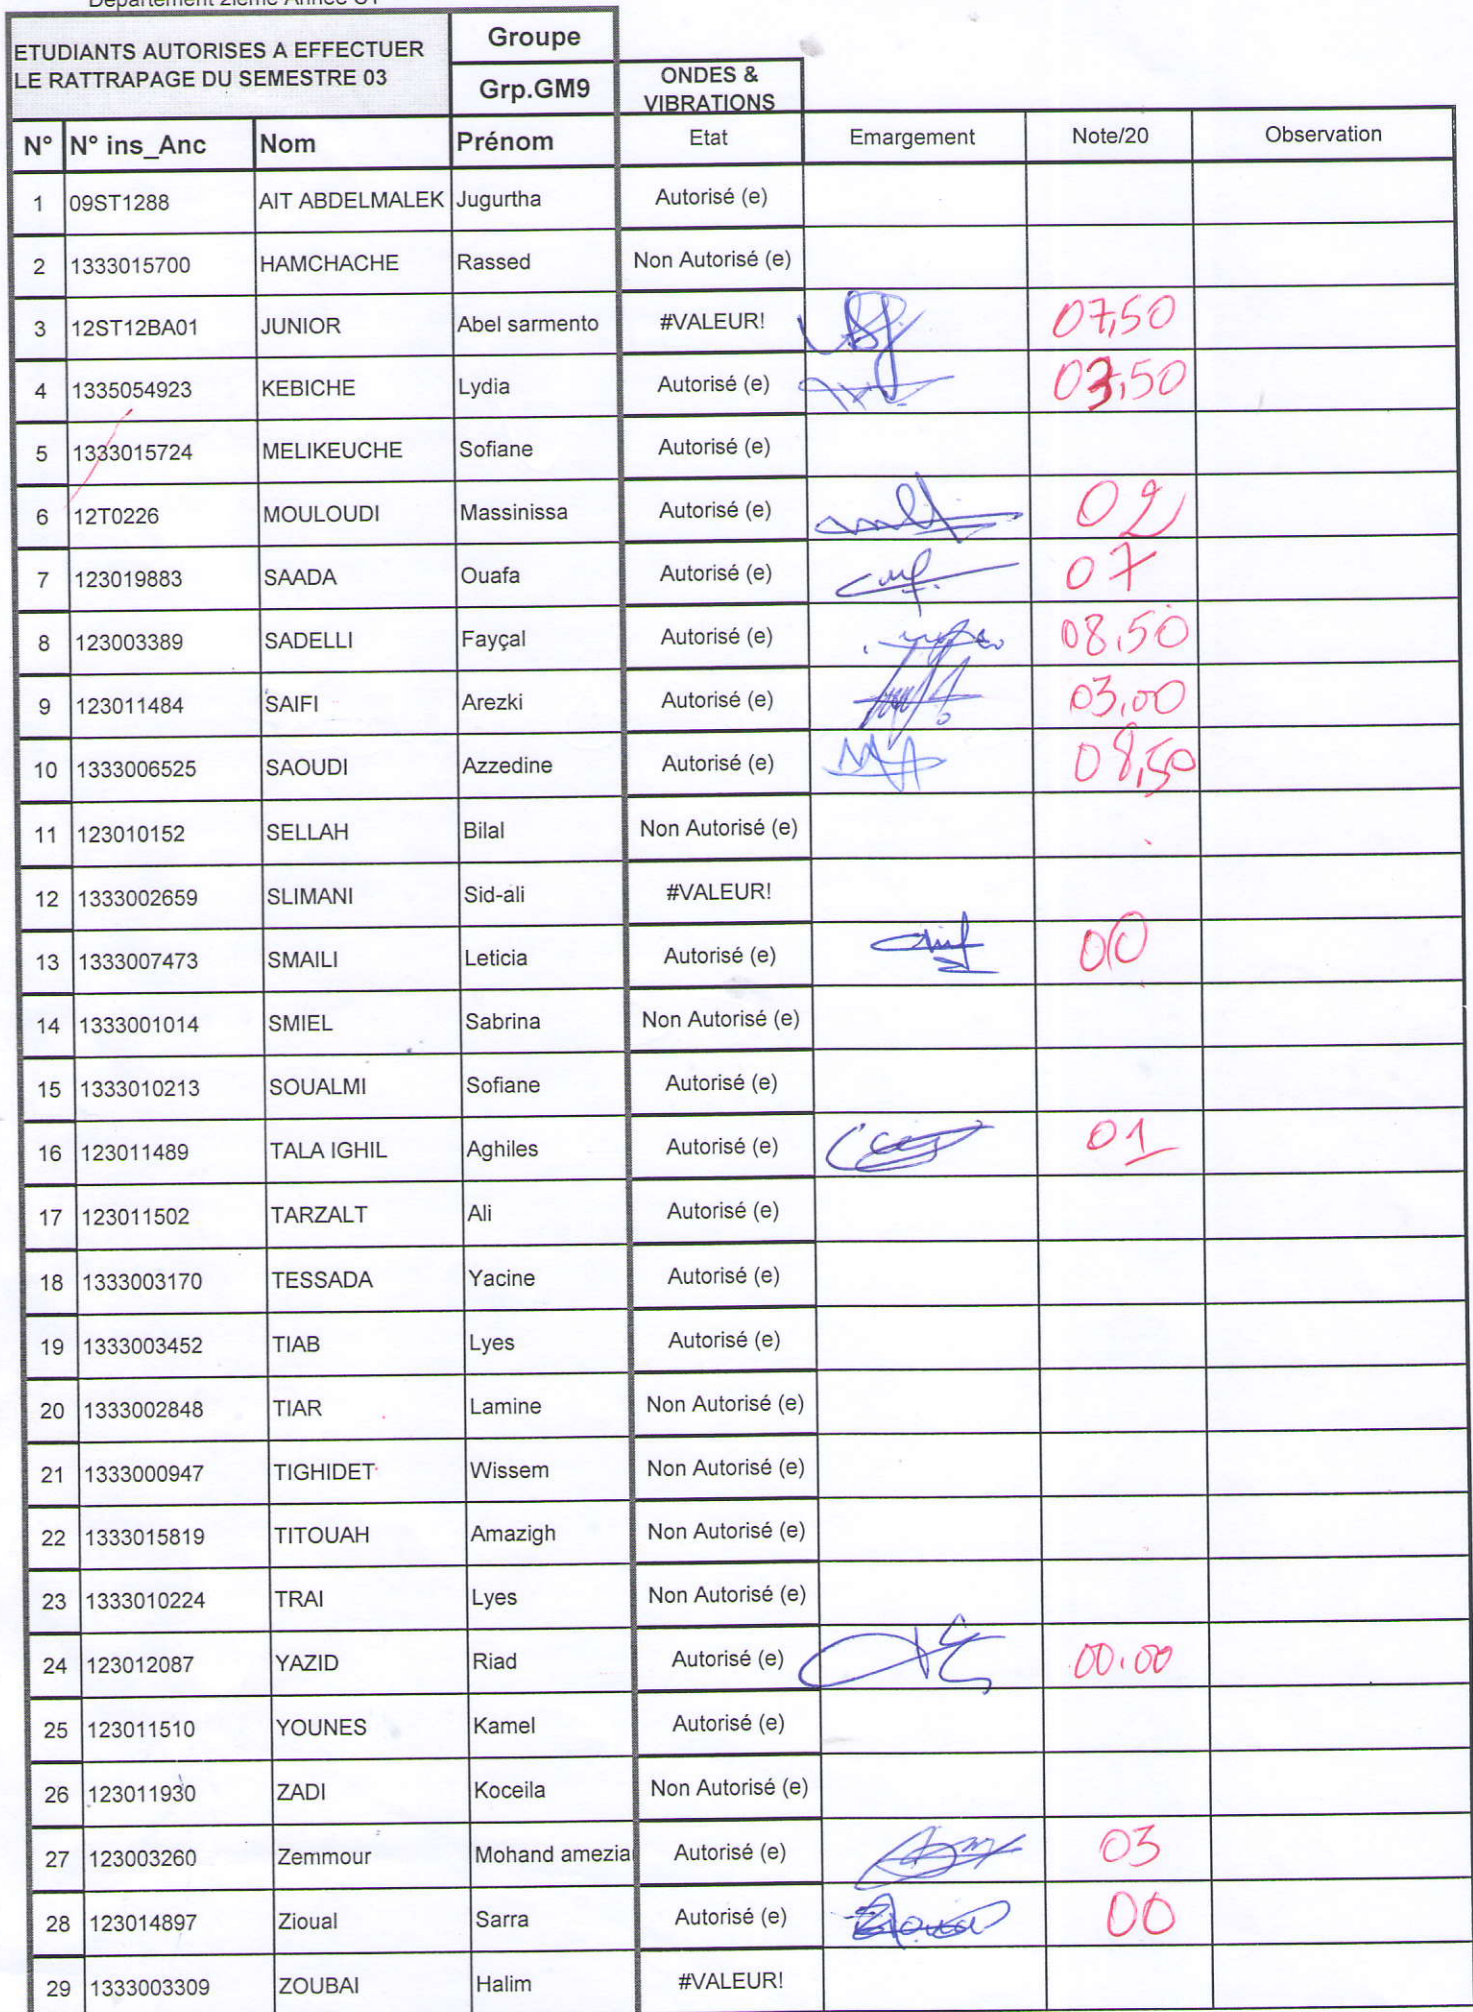 Département 2ième Année ST
ETUDIANTS AUTORISES A EFFECTUER
LE RATTRAPAGE DU SEMESTRE 03
Groupe
Grp.GM9
ONDES &
VIBRATIONS
N° N° ins_Anc Nom Prénom Etat Emargement Note/20 Observation
1 09ST1288 AIT ABDELMALEK Jugurtha Autorisé (e)
2 1333015700 HAMCHACHE Rassed Non Autorisé (e)
3 12ST12BA01 JUNIOR Abel sarmento #VALEUR! 07,50
4 1335054923 KEBICHE Lydia Autorisé (e) 03,50
5 1333015724 MELIKEUCHE Sofiane Autorisé (e)
6 12T0226 MOULOUDI Massinissa Autorisé (e) 02
7 123019883 SAADA Ouafa Autorisé (e) 07
8 123003389 SADELLI Fayçal Autorisé (e) 08,50
9 123011484 SAIFI Arezki Autorisé (e) 03,00
10 1333006525 SAOUDI Azzedine Autorisé (e) 08,50
11 123010152 SELLAH Bilal Non Autorisé (e)
12 1333002659 SLIMANI Sid-ali #VALEUR!
13 1333007473 SMAILI Leticia Autorisé (e) 00
14 1333001014 SMIEL Sabrina Non Autorisé (e)
15 1333010213 SOUALMI Sofiane Autorisé (e)
16 123011489 TALA IGHIL Aghiles Autorisé (e) 01
17 123011502 TARZALT Ali Autorisé (e)
18 1333003170 TESSADA Yacine Autorisé (e)
19 1333003452 TIAB Lyes Autorisé (e)
20 1333002848 TIAR Lamine Non Autorisé (e)
21 1333000947 TIGHIDET Wissem Non Autorisé (e)
22 1333015819 TITOUAH Amazigh Non Autorisé (e)
23 1333010224 TRAI Lyes Non Autorisé (e)
24 123012087 YAZID Riad Autorisé (e) 00.00
25 123011510 YOUNES Kamel Autorisé (e)
26 123011930 ZADI Koceila Non Autorisé (e)
27 123003260 Zemmour Mohand amezia Autorisé (e) 03
28 123014897 Zioual Sarra Autorisé (e) Zioual 00
29 1333003309 ZOUBAI Halim #VALEUR!